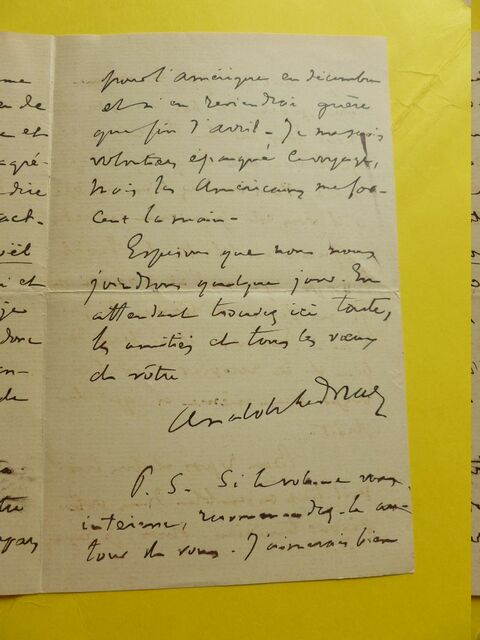 me
de
et
agré-
dire
act-
oël
i et
je
donc
en-
de
tre
pour l'Amérique en décembre
et n'en reviendrai guère
que fin d'avril – Je me serais
volontiers épargné ce voyage,
mais les Américains me for-
cent la main –
Espérons que nous nous
joindrons quelque jour. En
attendant trouvez ici toutes
les amitiés et tous les vœux
de vôtre
P. S. Si le volume vous
intéresse, recommandez-le au-
tour de vous. J'aimerais bien